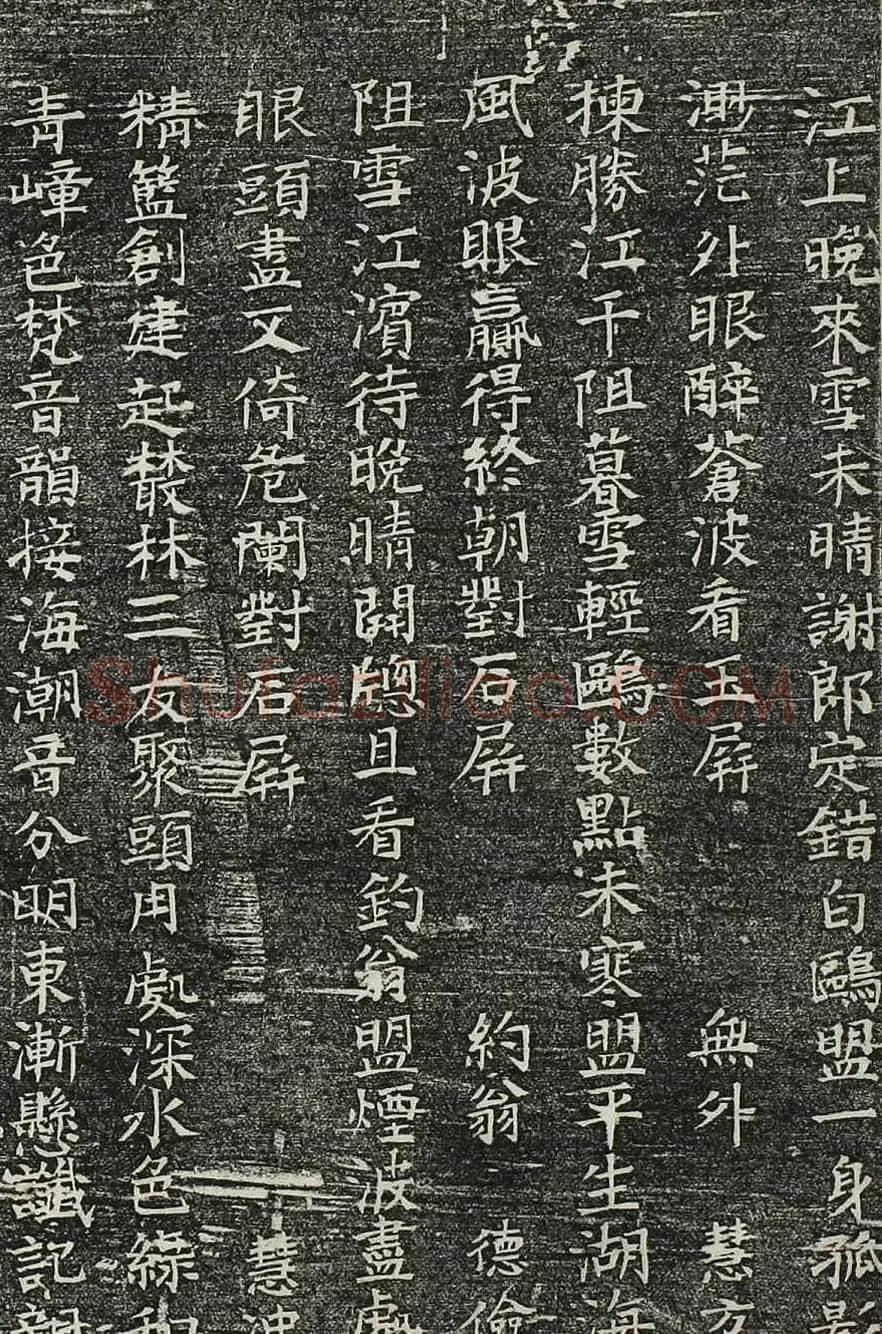 江上晚來雪未晴謝郎定錯白鷗盟一身孤影
渺茫外眼醉蒼波看玉屏 無外 慧方
揀勝江干阻暮雪輕鷗數點未寒盟平生湖海
風波眼贏得終朝對石屏 約翁 德儉
阻雪江濱待晚晴開牕且看釣翁盟煙波盡處
眼頭盡又倚危闌對石屏 慧冲
精籃創建起叢林三友聚頭用處深水色綠和
青嶂色梵音韻接海潮音分明東漸懸讖記
Shufaziliao.COM